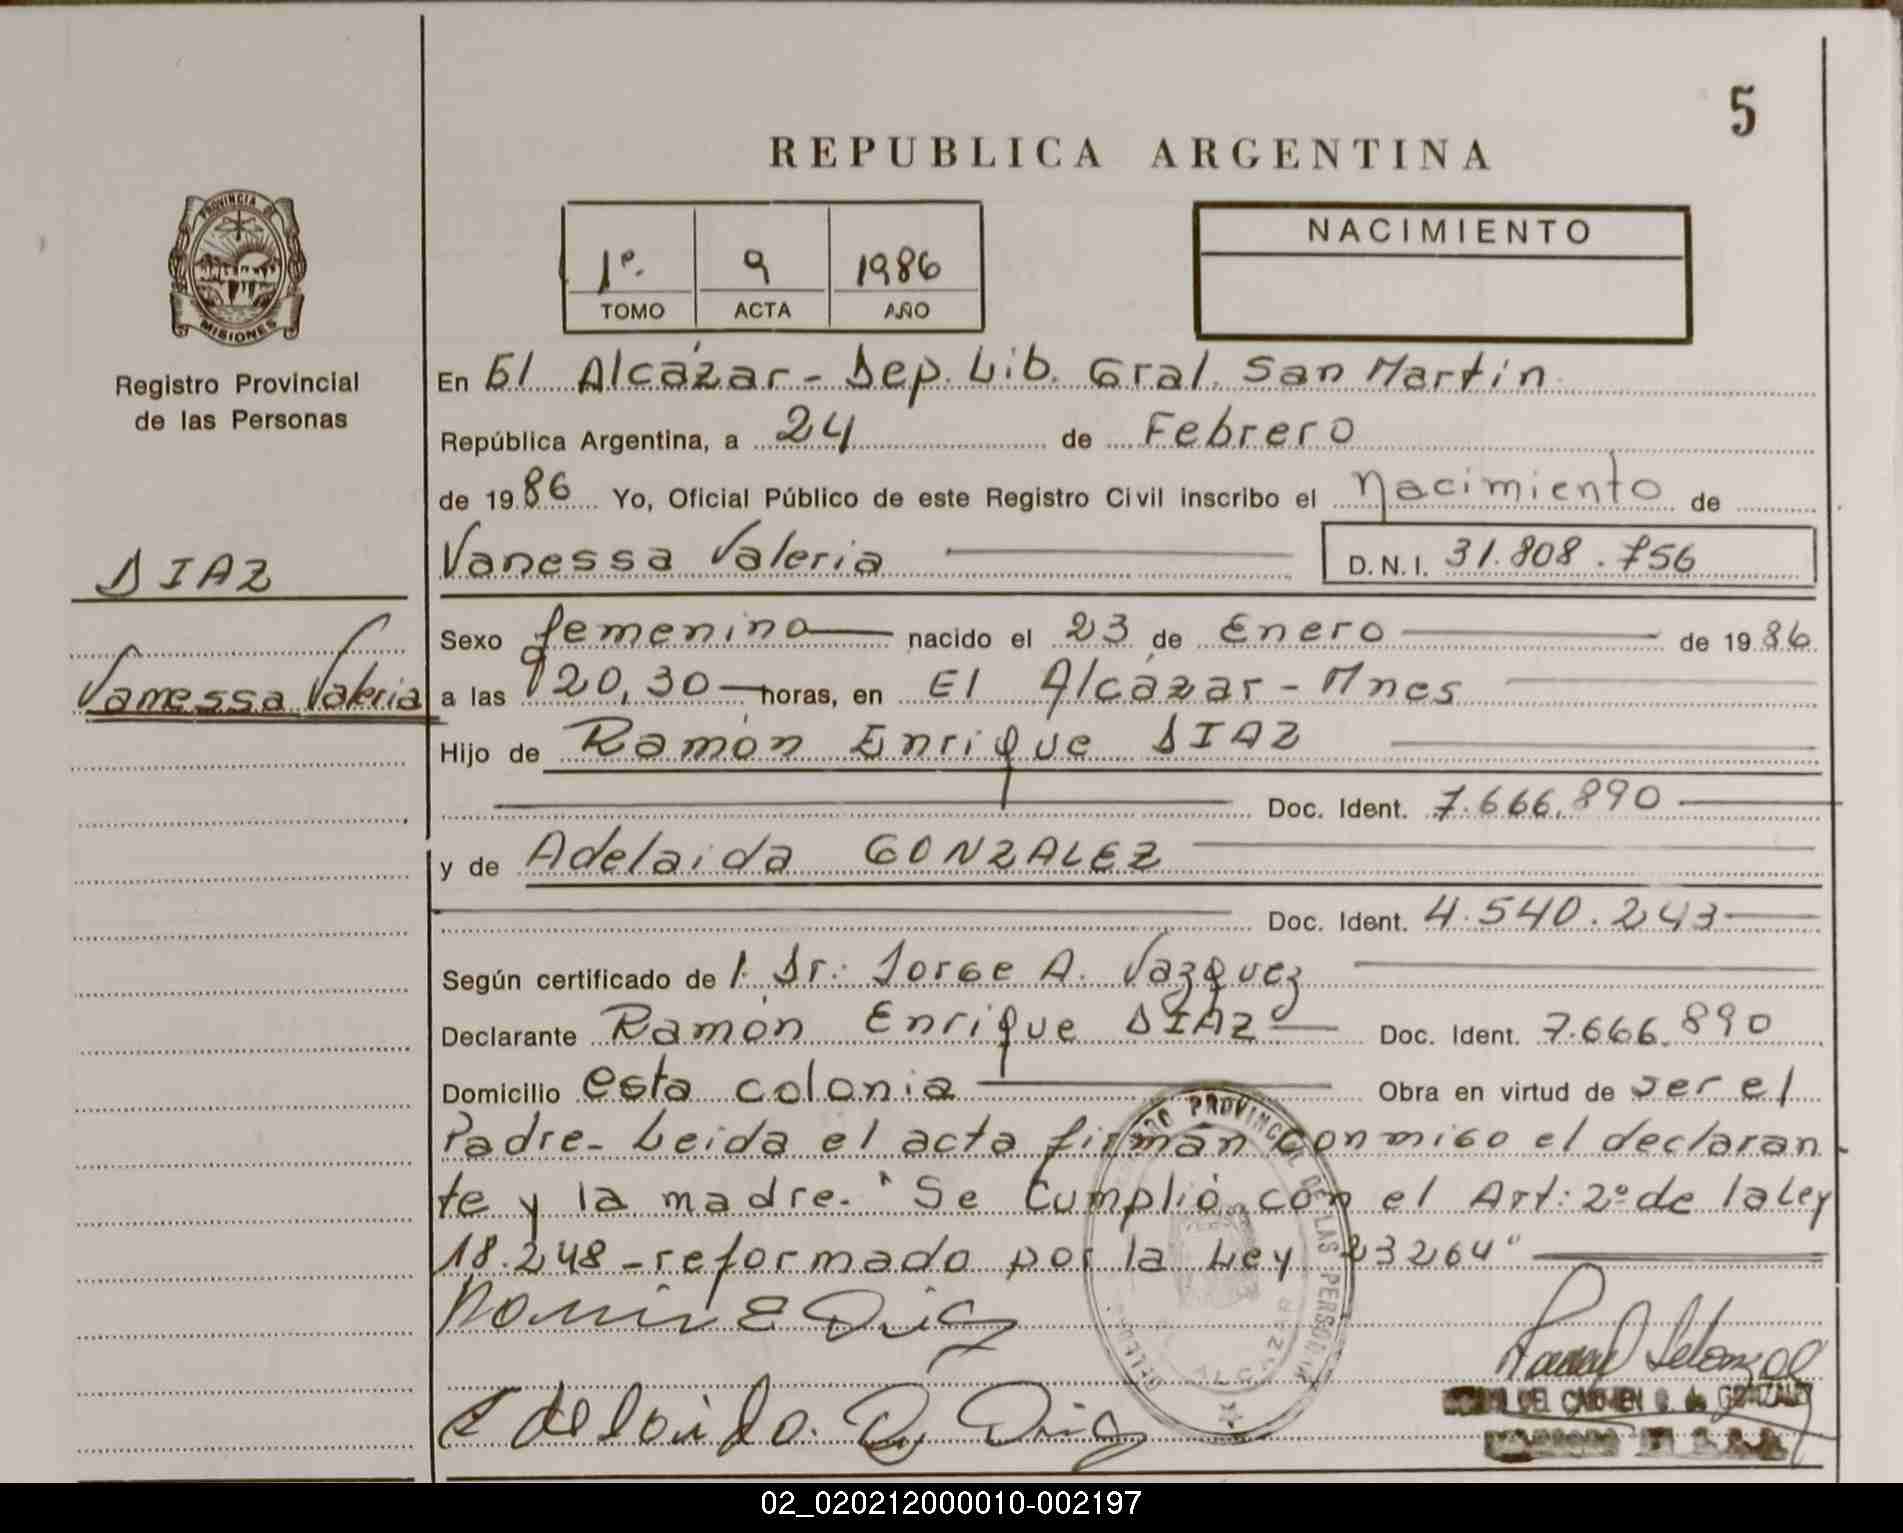 5
REPUBLICA ARGENTINA
PROVINCIA DE
MISIONES
Registro Provincial
de las Personas
1º. 9 1986
TOMO ACTA AÑO
NACIMIENTO
En El Alcázar - Dep. Lib. Gral. San Martín
República Argentina, a 24 de Febrero
de 1986 Yo, Oficial Público de este Registro Civil inscribo el Nacimiento de
DIAZ
Vanessa Valeria D.N.I. 31.808.756
Sexo femenino nacido el 23 de Enero de 1986
Vanessa Valeria
a las 20,30 horas, en El Alcázar - Mnes
Hijo de Ramón Enrique DIAZ
Doc. Ident. 7.666.890
y de Adelaida GONZALEZ
Doc. Ident. 4.540.243
Según certificado de l. Dr. Jorge A. Vazquez
Declarante Ramón Enrique DIAZ Doc. Ident. 7.666.890
Domicilio esta colonia Obra en virtud de ser el
Padre- Leida el acta firman conmigo el declaran-
te y la madre. "Se Cumplió con el Art: 2º de la Ley
18.248 - reformado por la Ley 23264"
Ramón E Diaz
Adelaida. D. Diaz
PROVINCIAL DE LAS PERSONAS
DEL CARMEN G. de GONZALEZ
02_020212000010-002197